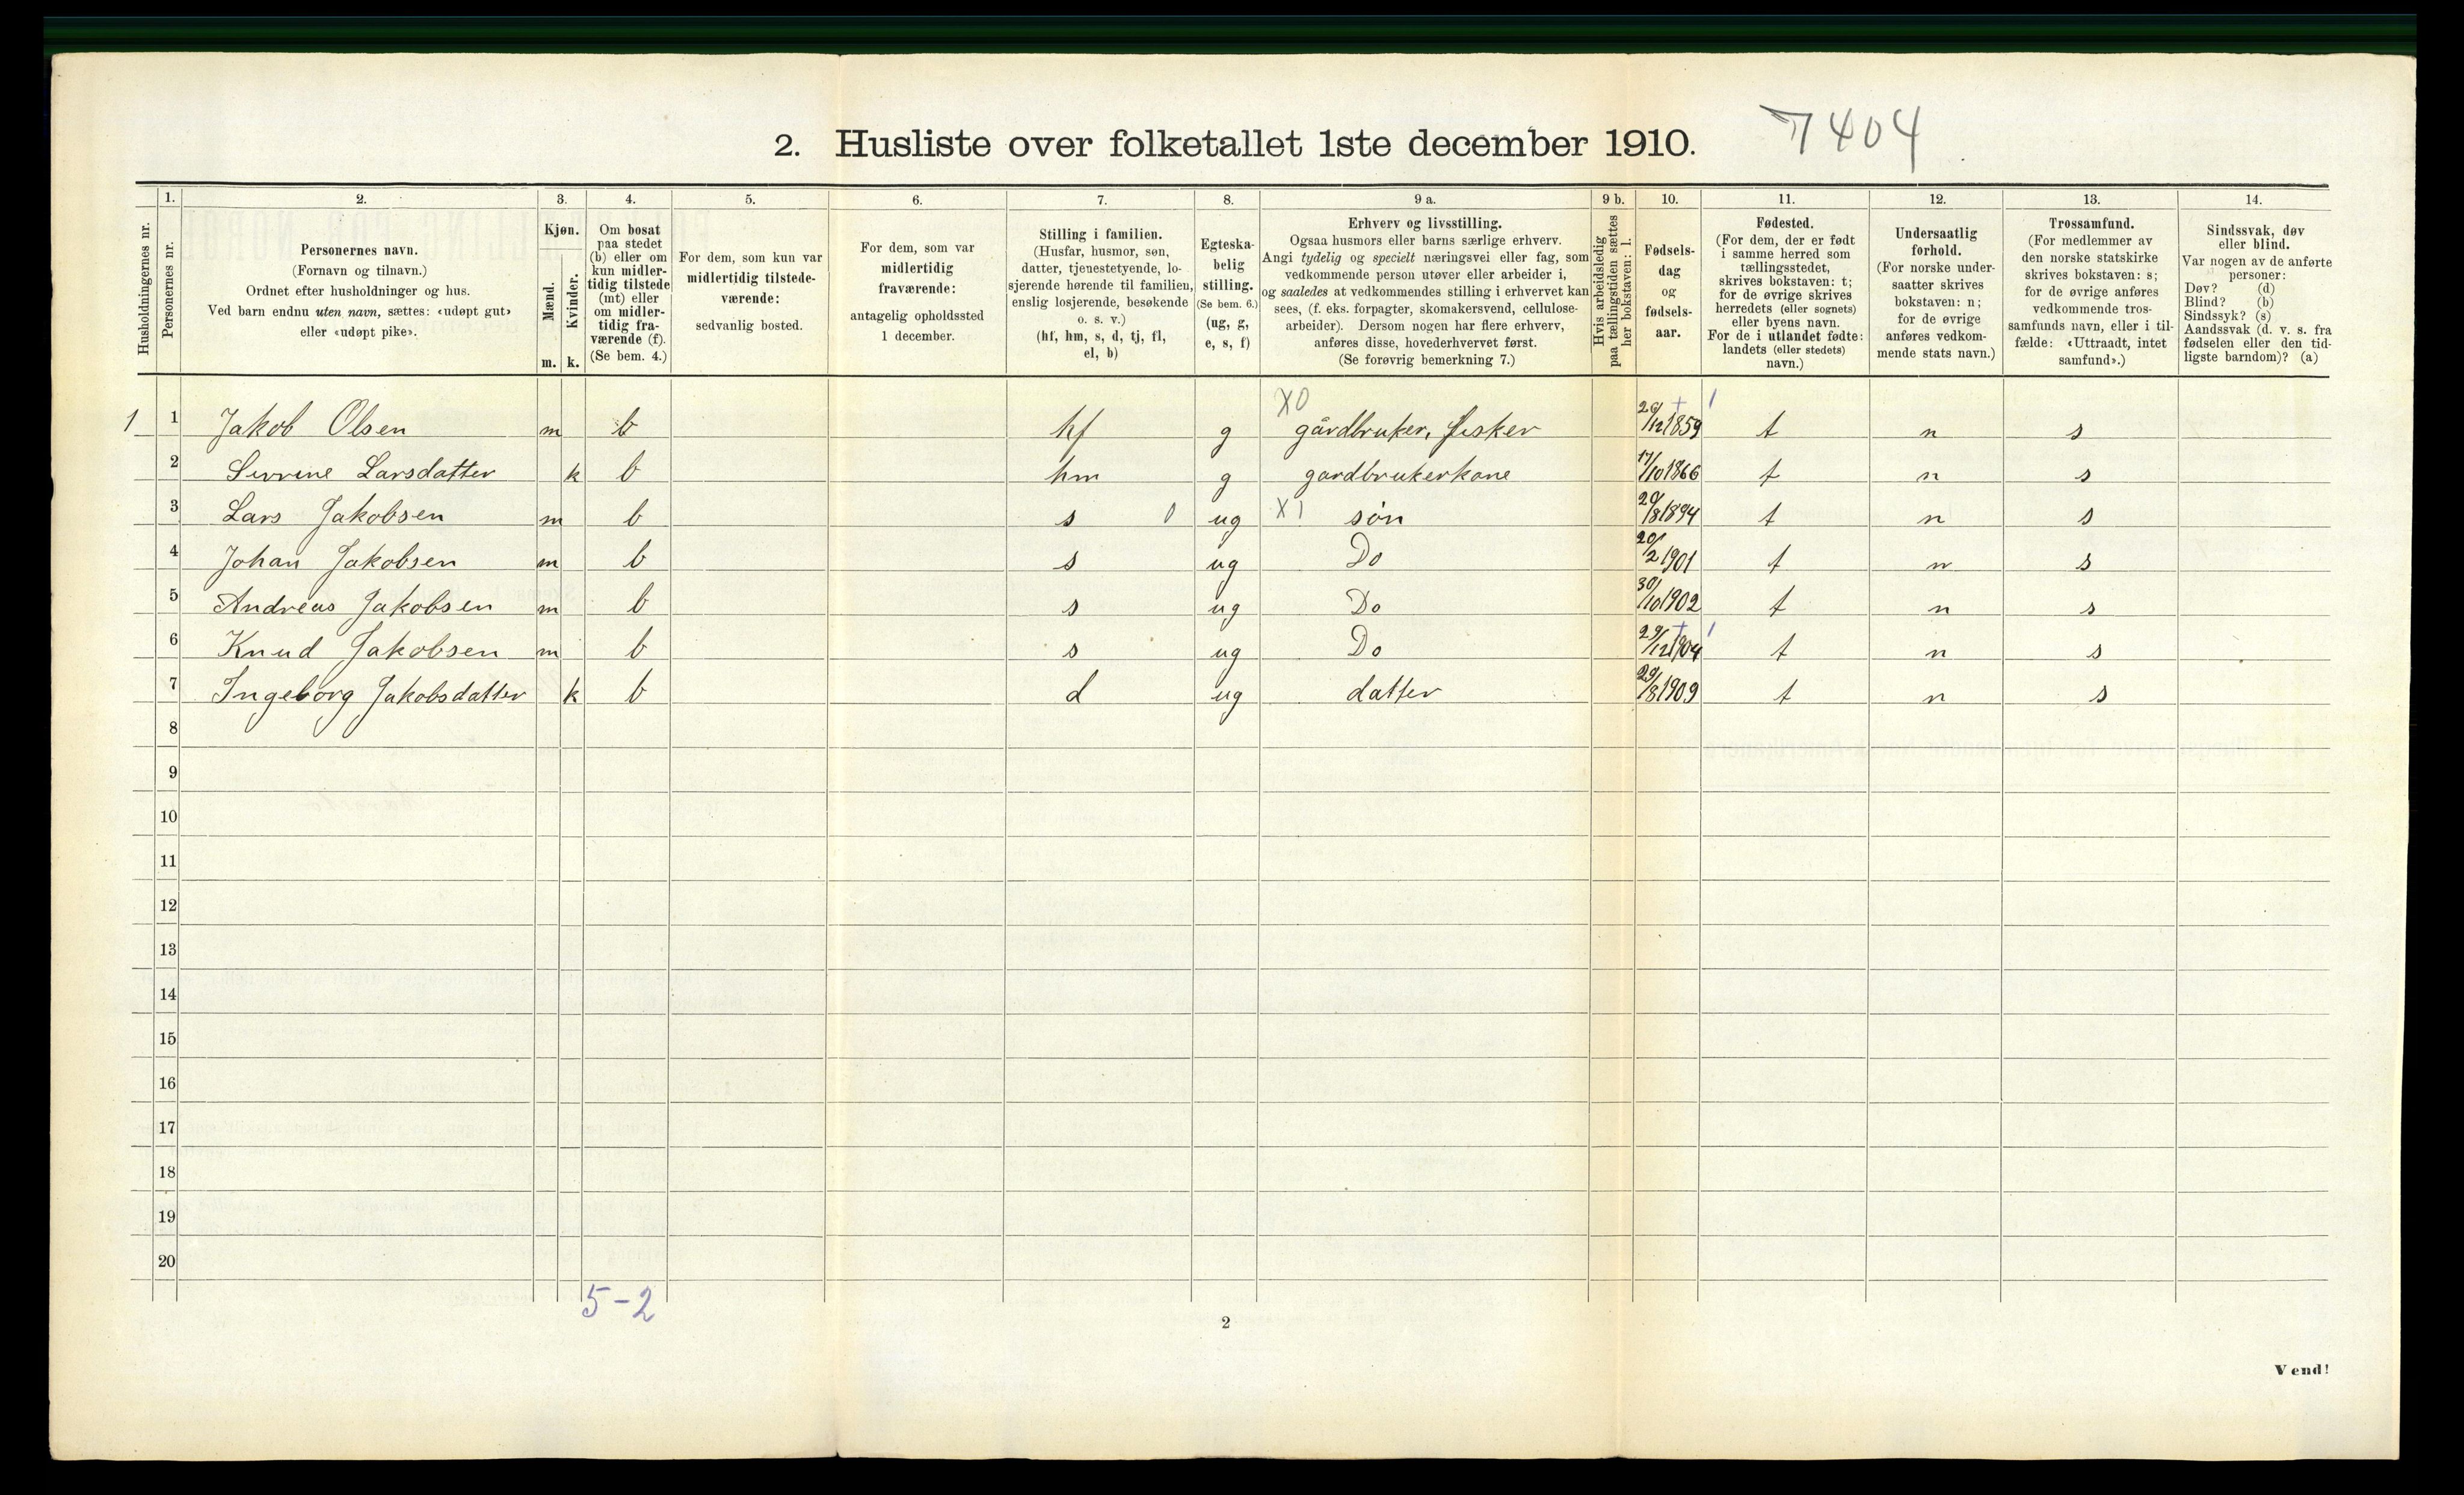 2. Husliste over folketallet 1ste december 1910. 7404
Husholdningernes nr.
1. Personernes nr.
2. Personernes navn.
(Fornavn og tilnavn.)
Ordnet efter husholdninger og hus.
Ved barn endnu uten navn, sættes: «udøpt gut»
eller «udøpt pike».
3. Kjøn.
Mænd. m.
Kvinder. k.
4. Om bosat
paa stedet
(b) eller om
kun midler-
tidig tilstede
(mt) eller
om midler-
tidig fra-
værende (f).
(Se bem. 4.)
5. For dem, som kun var
midlertidig tilstede-
værende:
sedvanlig bosted.
6. For dem, som var
midlertidig
fraværende:
antagelig opholdssted
1 december.
7. Stilling i familien.
(Husfar, husmor, søn,
datter, tjenestetyende, lo-
sjerende hørende til familien,
enslig losjerende, besøkende
o. s. v.)
(hf, hm, s, d, tj, fl,
el, b)
8. Egteska-
belig
stilling.
(Se bem. 6.)
(ug, g,
e, s, f)
9 a. Erhverv og livsstilling.
Ogsaa husmors eller barns særlige erhverv.
Angi tydelig og specielt næringsvei eller fag, som
vedkommende person utøver eller arbeider i,
og saaledes at vedkommendes stilling i erhvervet kan
sees, (f. eks. forpagter, skomakersvend, cellulose-
arbeider). Dersom nogen har flere erhverv,
anføres disse, hovederhvervet først.
(Se forøvrig bemerkning 7.)
9 b. Hvis arbeidsledig
paa tællingstiden sættes
her bokstaven: l.
10. Fødsels-
dag
og
fødsels-
aar.
11. Fødested.
(For dem, der er født
i samme herred som
tællingsstedet,
skrives bokstaven: t;
for de øvrige skrives
herredets (eller sognets)
eller byens navn.
For de i utlandet fødte:
landets (eller stedets)
navn.)
12. Undersaatlig
forhold.
(For norske under-
saatter skrives
bokstaven: n;
for de øvrige
anføres vedkom-
mende stats navn.)
13. Trossamfund.
(For medlemmer av
den norske statskirke
skrives bokstaven: s;
for de øvrige anføres
vedkommende tros-
samfunds navn, eller i til-
fælde: «Uttraadt, intet
samfund».)
14. Sindssvak, døv
eller blind.
Var nogen av de anførte
personer:
Døv? (d)
Blind? (b)
Sindssyk? (s)
Aandssvak (d. v. s. fra
fødselen eller den tid-
ligste barndom)? (a)
X0
1 1 Jakob Olsen m b hf g gårdbruker, fisker 26/12 1859 t n s
2 Larsdatter k b hm g gardbrukerkone 17/10 1866 t n s
3 Lars Jakobsen m b s 0 ug X1 søn 20/8 1894 t n s
4 Johan Jakobsen m b s ug Do 20/2 1901 t n s
5 Andreas Jakobsen m b s ug Do 30/10 1902 t n s
6 Knud Jakobsen m b s ug Do 29/12 1904 t n s
7 Ingeborg Jakobsdatter k b d ug datter 29/8 1909 t n s
8
9
10
11
12
13
14
15
16
17
18
19
20
5-2
2
Vend!